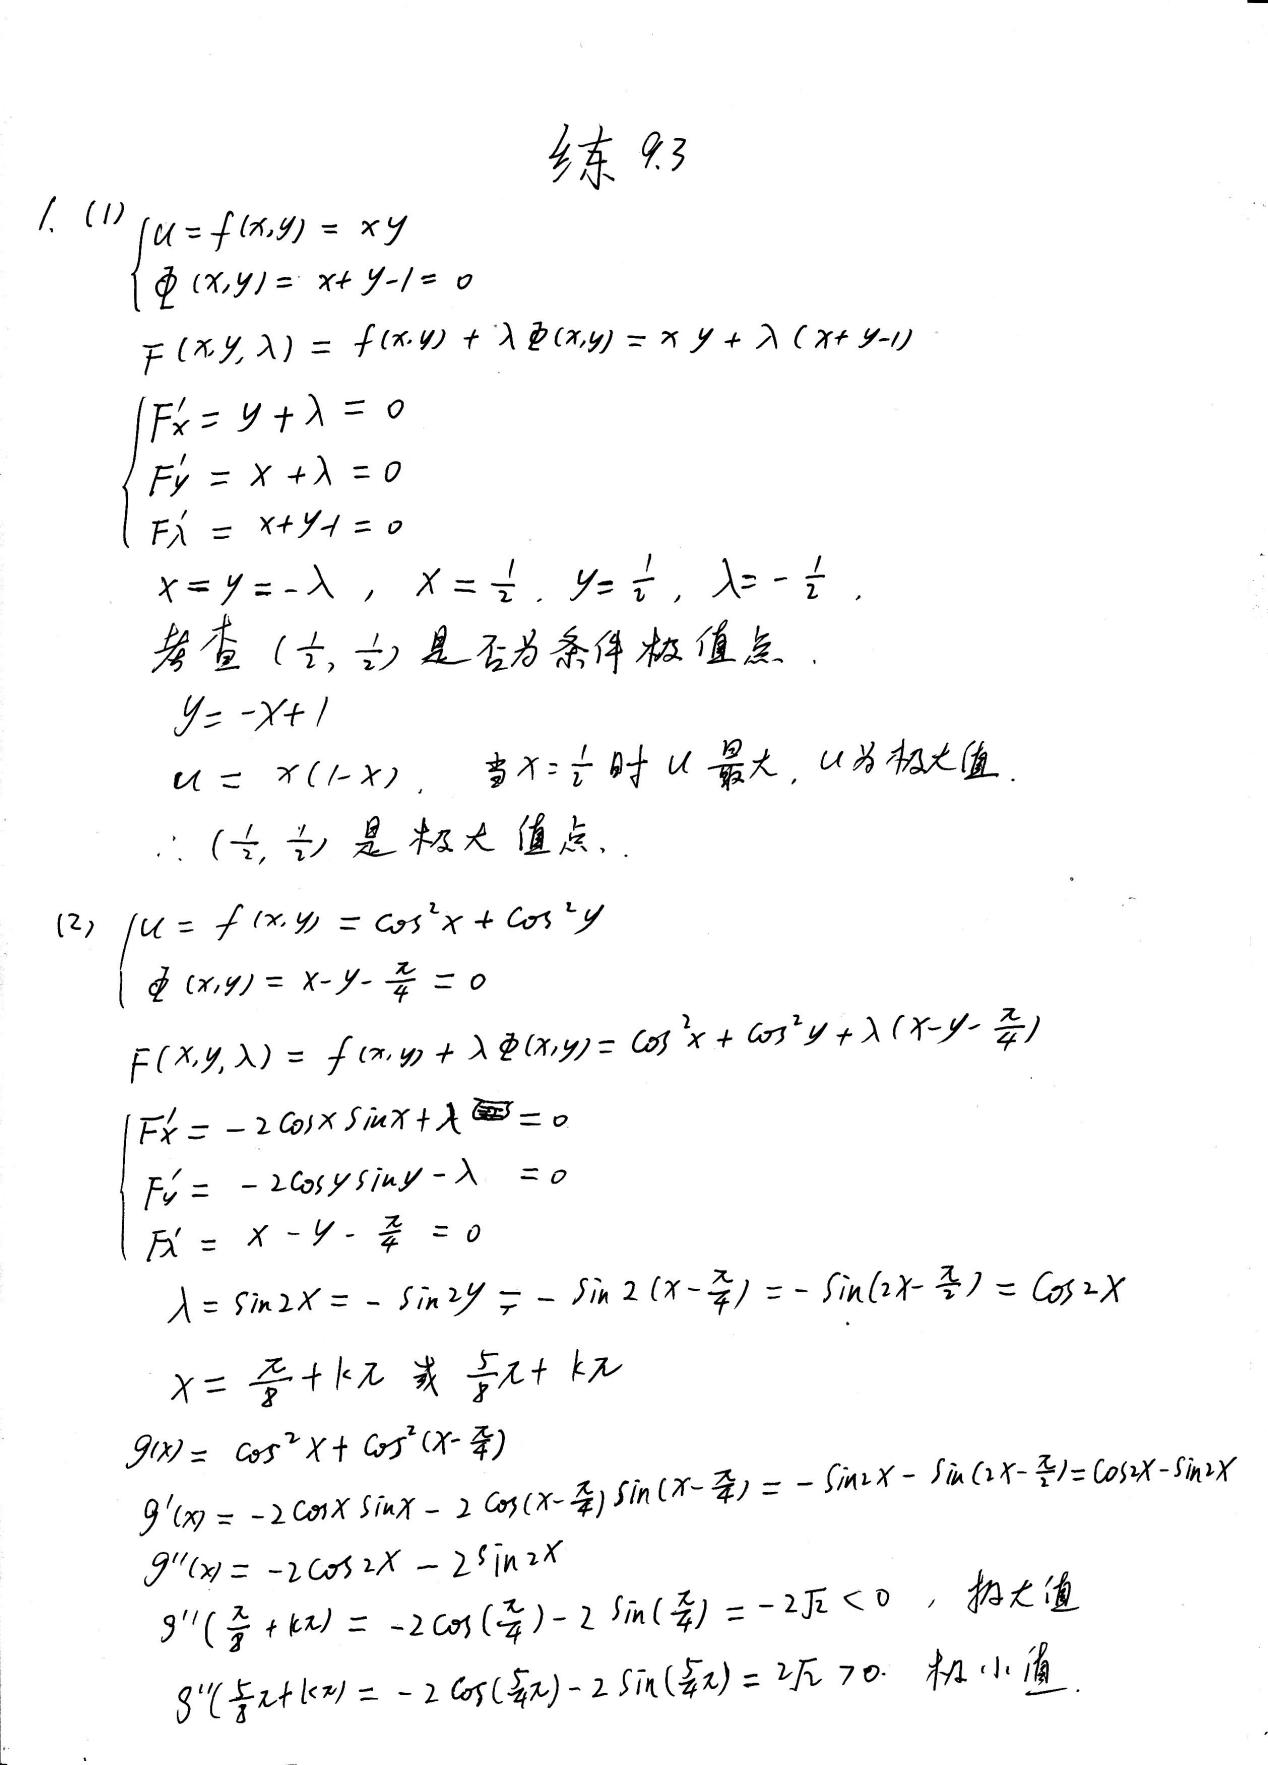 练 9.3
1. (1) { u = f(x,y) = xy
Φ(x,y) = x+y-1=0
F(x,y,λ) = f(x,y) + λΦ(x,y) = xy + λ(x+y-1)
{ F'x = y+λ = 0
F'y = x+λ = 0
F'λ = x+y-1 = 0
x=y=-λ, x=1/2. y=1/2, λ=-1/2.
考查 (1/2, 1/2) 是否为条件极值点.
y=-x+1
u = x(1-x). 当x=1/2时u最大, u为极大值.
∴ (1/2, 1/2) 是极大值点.
(2) { u = f(x,y) = cos²x + cos²y
Φ(x,y) = x-y-π/4 = 0
F(x,y,λ) = f(x,y) + λΦ(x,y) = cos²x + cos²y + λ(x-y-π/4)
{ F'x = -2cosx sinx + λ = 0
F'y = -2cosy siny - λ = 0
F'λ = x-y-π/4 = 0
λ = sin2x = -sin2y = -sin2(x-π/4) = -sin(2x-π/2) = cos2x
x = π/8 + kπ 或 5/8π + kπ
g(x) = cos²x + cos²(x-π/4)
g'(x) = -2cosx sinx - 2cos(x-π/4)sin(x-π/4) = -sin2x - sin(2x-π/2) = cos2x-sin2x
g''(x) = -2cos2x - 2sin2x
g''(π/8 + kπ) = -2cos(π/4) - 2sin(π/4) = -2√2 < 0, 极大值
g''(5/8π+kπ) = -2cos(5/4π) - 2sin(5/4π) = 2√2 > 0. 极小值.